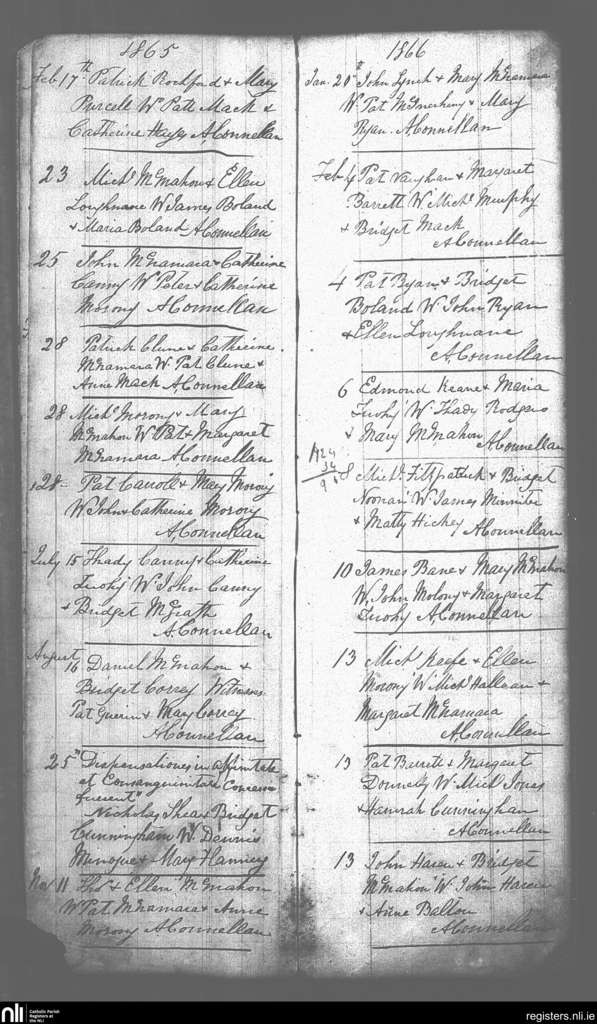 1865
Feb 17th Patrick Rochford & Mary
Purcell W Patt Mack &
Catherine Hayes AConnellan
23 Michl McMahon & Ellen
Loughnane W James Boland
& Maria Boland AConnellan
25 John McNamara & Catherine
Canny W Peter & Catherine
Morony AConnellan
28 Patrick Clune & Catherine
McNamara W. Pat Clune &
Anne Mack AConnellan
28 Michl Morony & Mary
McMahon W Pat & Margaret
McNamara AConnellan
28 Pat Carroll & Mary Morony
W John & Catherine Morony
AConnellan
July 15 Thady Canny & Catherine
Tuohy W John Canny
& Bridget McGrath
A.Connellan
August 16 Daniel McMahon &
Bridget Correy Witness
Pat Guerin & Mary Correy
AConnellan
25th "Dispensationes in affinitate
et Consanguinitate
fuerent"
Nicholas Shea & Bridget
Cunningham W. Dennis
Minogue & Mary
Nov 11 Thos & Ellen McMahon
W Pat McNamara & Anne
Morony AConnellan
1866
Jan. 20th John Lynch & Mary McNamara
W Pat McInerheny & Mary
Ryan. AConnellan
Feb 4 Pat Vaughan & Margaret
Barrett W. Michl Murphy
& Bridget Mack
AConnellan
4 Pat Ryan & Bridget
Boland W John Ryan
& Ellen Loughnane
AConnellan
6 Edmond Keane & Maria
Tuohy W Thady Rodgers
& Mary McMahon AConnellan
8 Michl. Fitzpatrick & Bridget
Noonan W James Minniter
& Matty Hickey AConnellan
10 James Bane & Mary McMahon
W. John Molony & Margaret
Tuohy AConnellan
13 Michl Keefe & Ellen
Morony W Michl Halloran &
Margaret McNamara
AConnellan
13 Pat Barrett & Margaret
Donnelly W Michl Jones
& Hannah Cunningham
AConnellan
13 John Haren & Bridget
McMahon W. John Haren
& Anne Ballon
AConnellan
nli Catholic Parish
Registers at
the NLI
registers.nli.ie